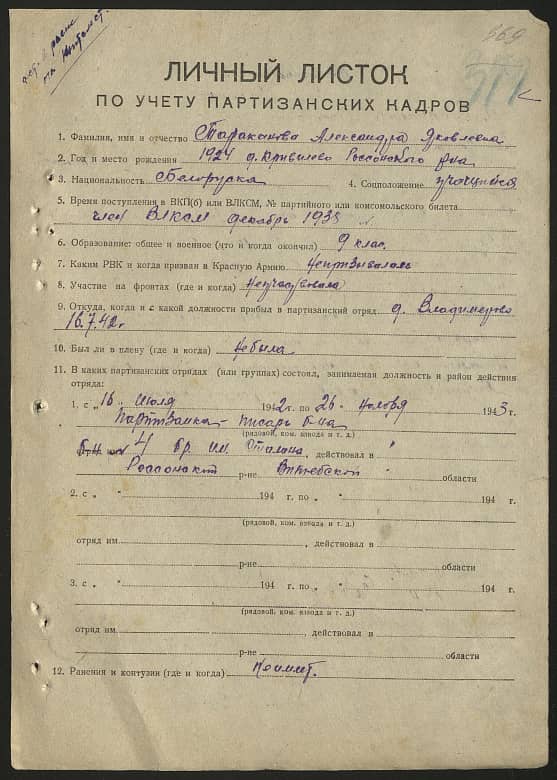 669
ЛИЧНЫЙ ЛИСТОК
ПО УЧЕТУ ПАРТИЗАНСКИХ КАДРОВ
1. Фамилия, имя и отчество Тараканова Александра Яковлевна
2. Год и место рождения 1924 д. Россонского р-на
3. Национальность Белорурка 4. Соцположение учащийся
5. Время поступления в ВКП(б) или ВЛКСМ, № партийного или комсомольского билета
член ВЛКСМ декабрь 1938
6. Образование: общее и военное (что и когда окончил) 9 клас.
7. Каким РВК и когда призван в Красную Армию Непризывалась
8. Участие на фронтах (где и когда) Неучаствовала
9. Откуда, когда и с какой должности прибыл в партизанский отряд д.
16.7.42г
10. Был ли в плену (где и когда) Небыла
11. В каких партизанских отрядах (или группах) состоял, занимаемая должность и район действия
отряда:
1. с „16 июля 1942 г. по 26 ноября 1943 г.
Партизанка - писарь б-на
(рядовой, ком. взвода и т. д.)
отряд им 4 бр. им. Сталина, действовал в "
Россонский р-не Витебской области
2. с „ " 194 г. по „ " 194 г.
(рядовой, ком. взвода и т. д.)
отряд им. , действовал в
р-не области
3. с „ " 194 г. по „ " 194 г.
(рядовой, ком. взвода и т. д.)
отряд им , действовал в
р-не области
12. Ранения и контузии (где и когда) Неимит.